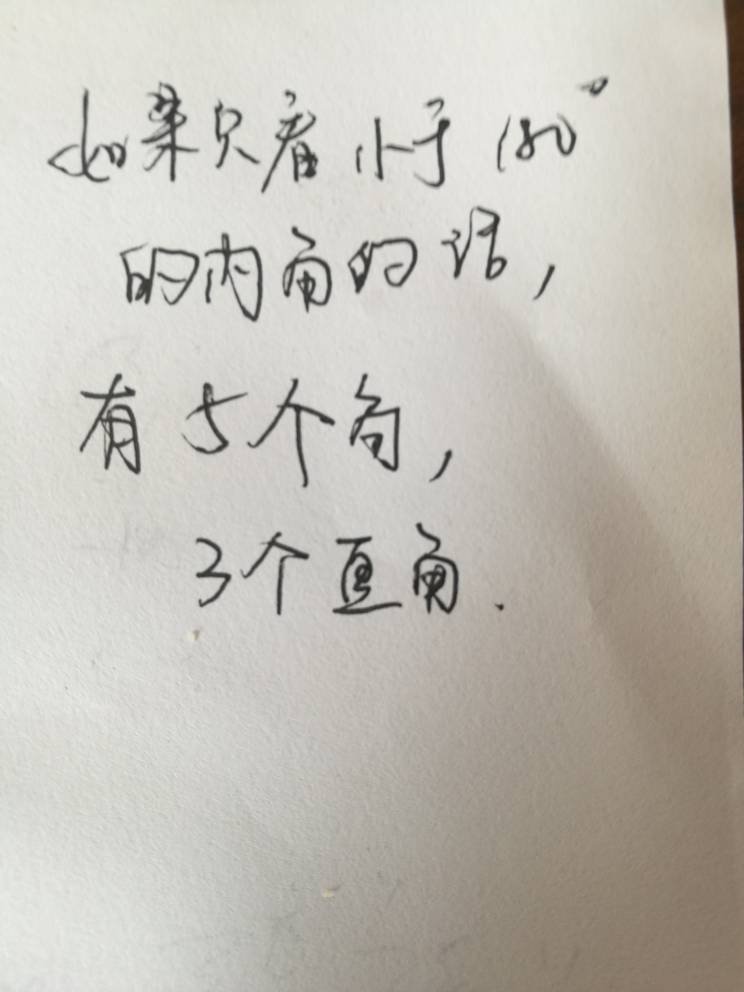 如果只看小于180°
的内角的话,
有5个角,
3个直角.